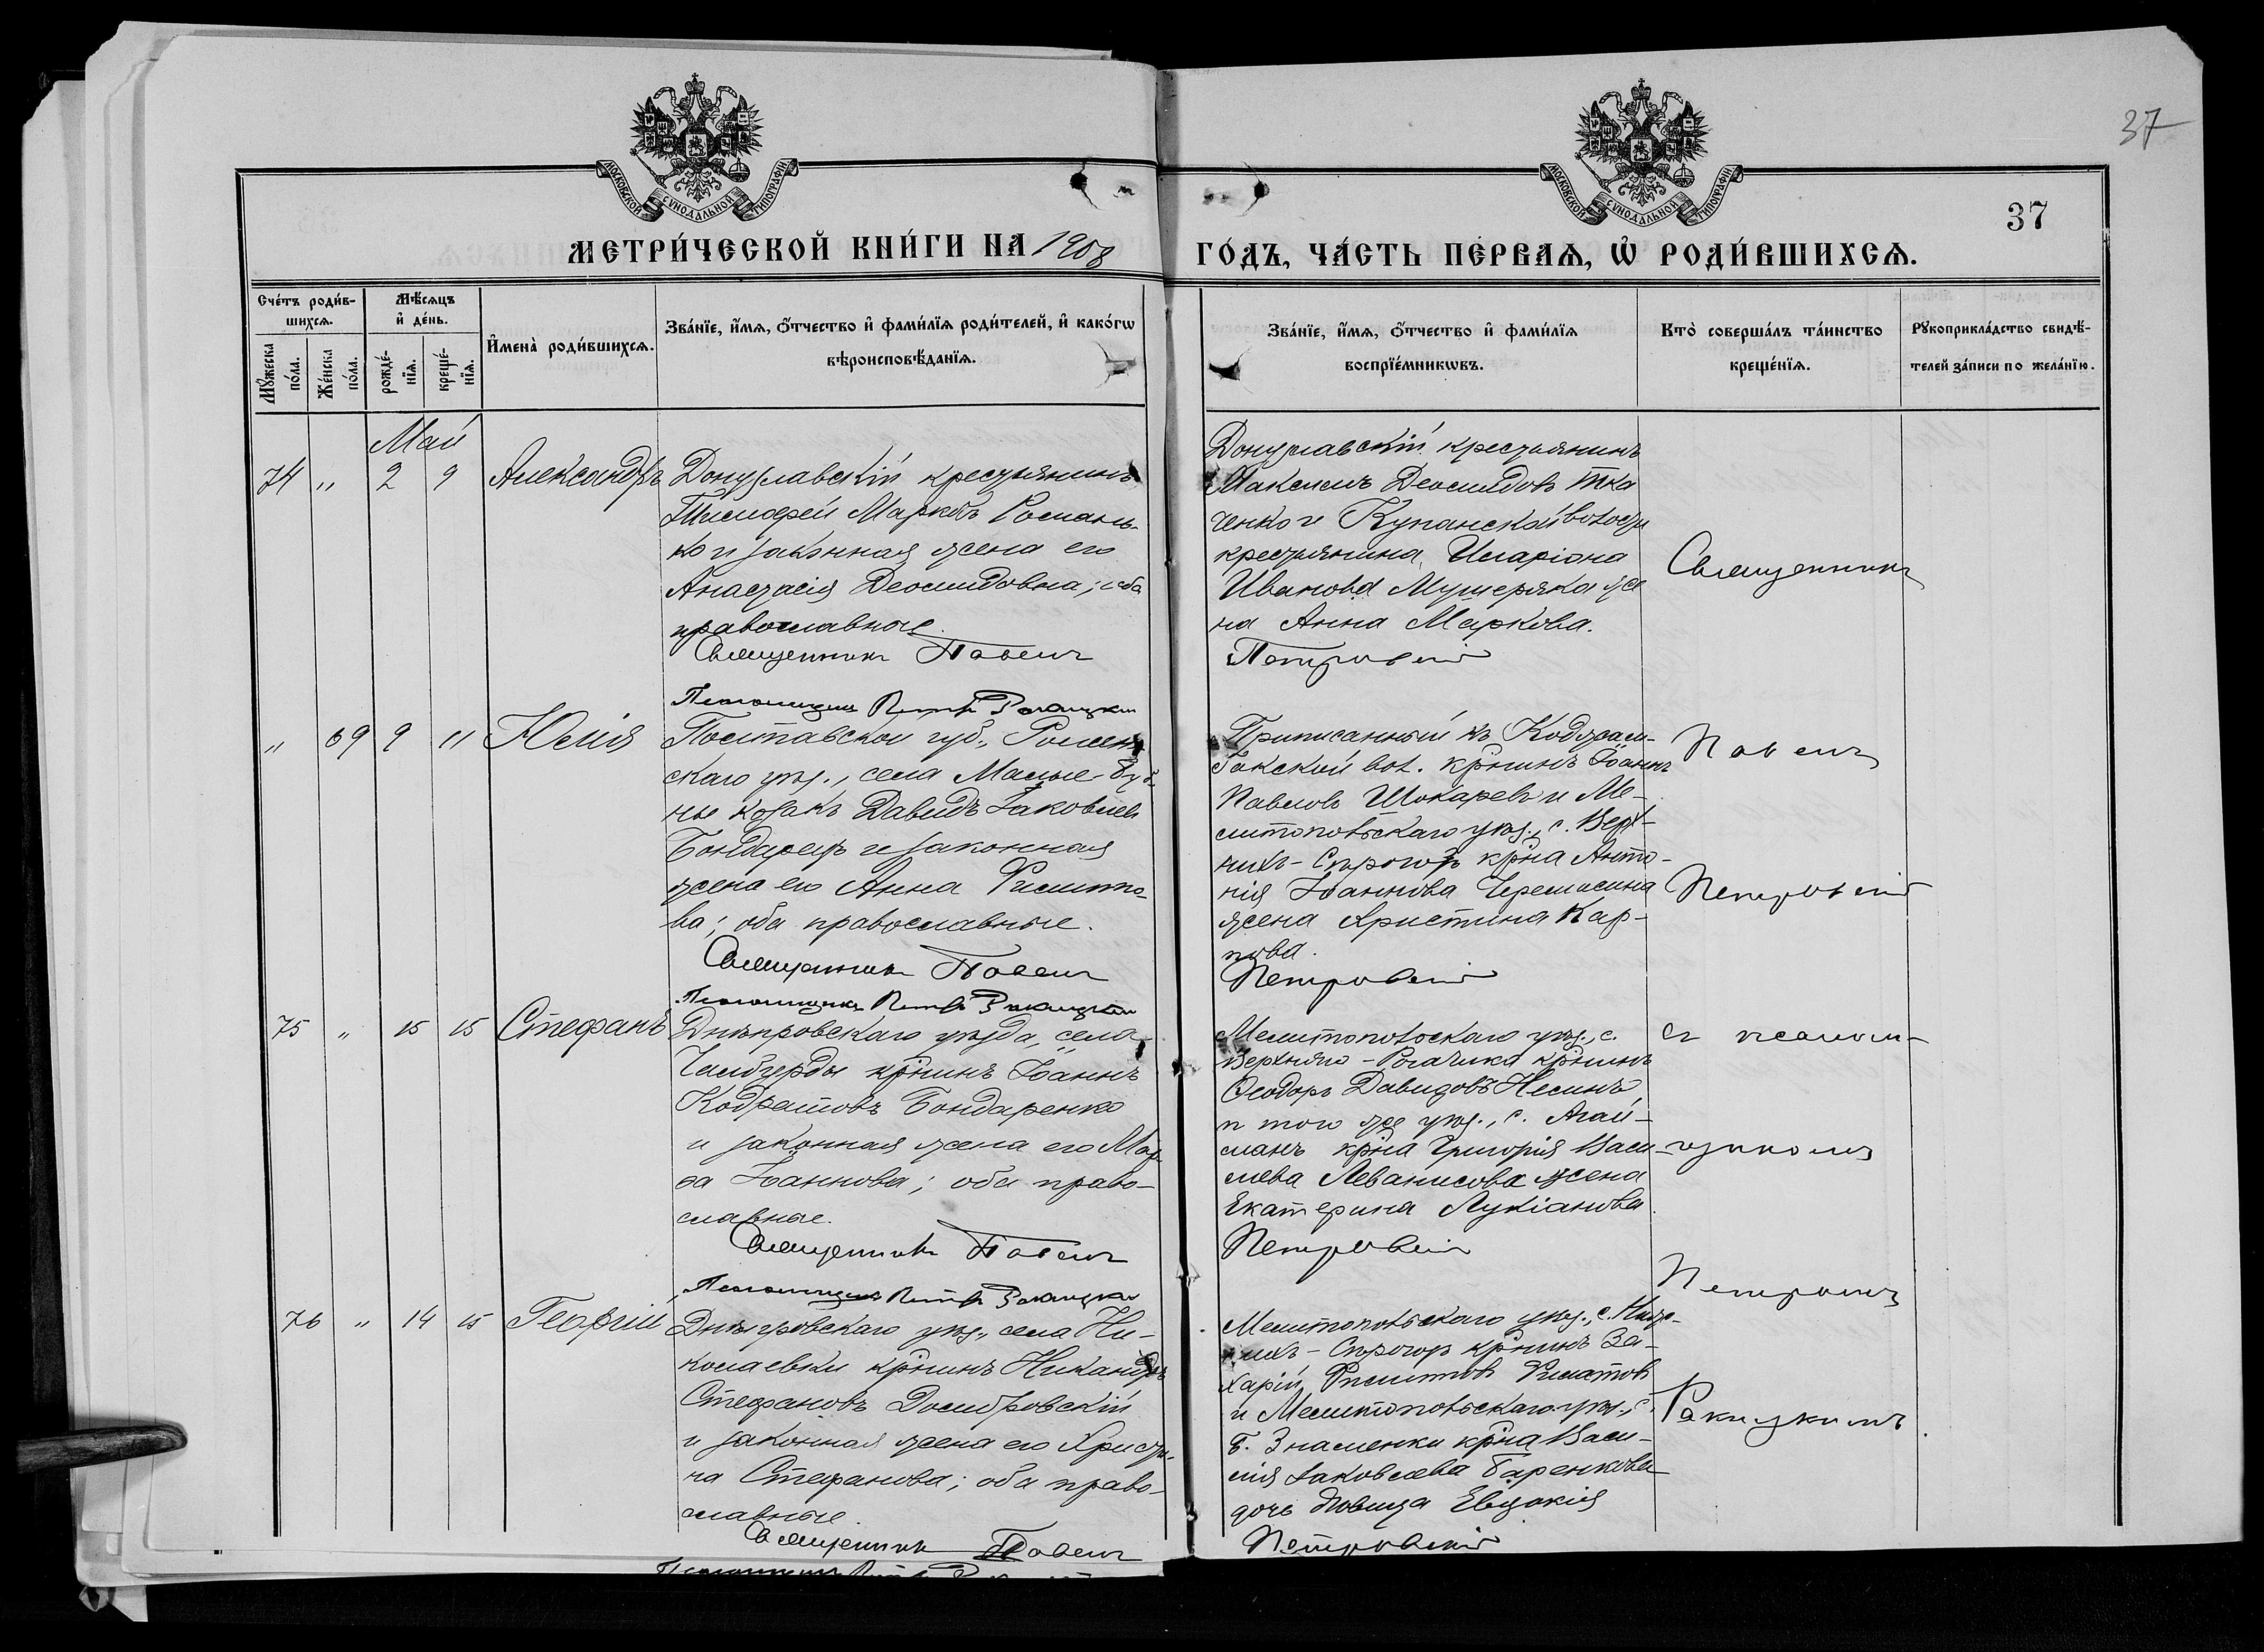 37
МОСКОВСКОЙ СѴНОДАЛЬНОЙ ТИПОГРАФІИ
МОСКОВСКОЙ СѴНОДАЛЬНОЙ ТИПОГРАФІИ
37
МЕТРИ́ЧЕСКОЙ КНИ́ГИ НА 1908
ГО́ДЪ, ЧА́СТЬ ПЕ́РВАѦ, Ѡ҆ РОДИ́ВШИХСѦ.
Сче́тъ роди́в-
шихсѧ.
Мꙋ́жеска по́ла.
Же́нска по́ла.
Мѣ́сѧцъ
и҆ де́нь.
рожде́-
нїѧ.
креще́-
нїѧ.
И҆мена̀ роди́вшихсѧ.
Зва́нїе, и҆́мѧ, ѻ҆́тчество и҆ фами́лїѧ роди́телей, и҆ како́гѡ
вѣроисповѣ́данїѧ.
Зва́нїе, и҆́мѧ, ѻ҆́тчество и҆ фами́лїѧ
воспрїе́мникѡвъ.
Кто̀ соверша́лъ та́инство
креще́нїѧ.
Рꙋкоприкла́дство свидѣ́-
телей за́писи по жела́нїю.
Май
74 " 2 9 Александръ
Донузлавскій крестьянинъ
Тимофей Марковъ Романь-
ко и законная жена его
Анастасія Деомидовна; оба
православные.
Священникъ Павелъ
Донузлавскій крестьянинъ
Максимъ Деомидовъ Тка
ченко и Кунанской волости
крестьянина Иларіона
Иванова Мушеряка же
на Анна Маркова.
Петровскій
Священникъ
Псаломщикъ Петръ Ракицкій
" 69 9 11 Юлія
Полтавской губ., Ромен-
скаго уѣз., села Малые-Буб-
ны козакъ Давидъ Іаковлевъ
Бондарь и законная
жена его Анна Филиппо-
ва; оба православные.
Священникъ Павелъ
Приписанный къ Кодыгай-
ской вол. кр҃нинъ Іоаннъ
Павловъ Шокаревъ и Ме-
литопольскаго уѣз., с. Верх-
нихъ-Сѣрогозъ кр҃на Анто-
нія Іоаннова Черемисина
жена Христина Кар-
пова.
Петровскій
Павелъ
Петровскій
Псаломщикъ Петръ Ракицкій
75 " 15 15 Стефанъ
Днѣпровскаго уѣзда, села
Чалбурды кр҃нинъ Іоаннъ
Кодратовъ Бондаренко
и законная жена его Мар-
ѳа Іоаннова; оба право-
славные.
Священникъ Павелъ
Мелитопольскаго уѣз., с.
Верхняго-Рогачика кр҃нинъ
Ѳеодоръ Давидовъ Несинъ
и того же уѣз., с. Агай-
манъ кр҃на Григорія Васи-
лева Леванисова жена
Екатерина Лукіанова
Петровскій
съ псалом-
щикомъ
Петромъ
Псаломщикъ Петръ Ракицкій
76 " 14 15 Георгій
Днѣпровскаго уѣз., села Ни-
колаевки кр҃нинъ Никандръ
Стефановъ Домбровскій
и законная жена его Христи-
на Стефанова; оба право-
славные.
Священникъ Павелъ
Мелитопольскаго уѣз., с. Ниж-
нихъ-Сѣрогозъ кр҃нинъ За-
харій Филипповъ Филатовъ
и Мелитопольскаго уѣз., с.
Б. Знаменки кр҃на Васи-
лія Іаковлева Баренкова
дочь дѣвица Евдокія
Петровскій
Ракицкимъ.
Псаломщикъ Петръ